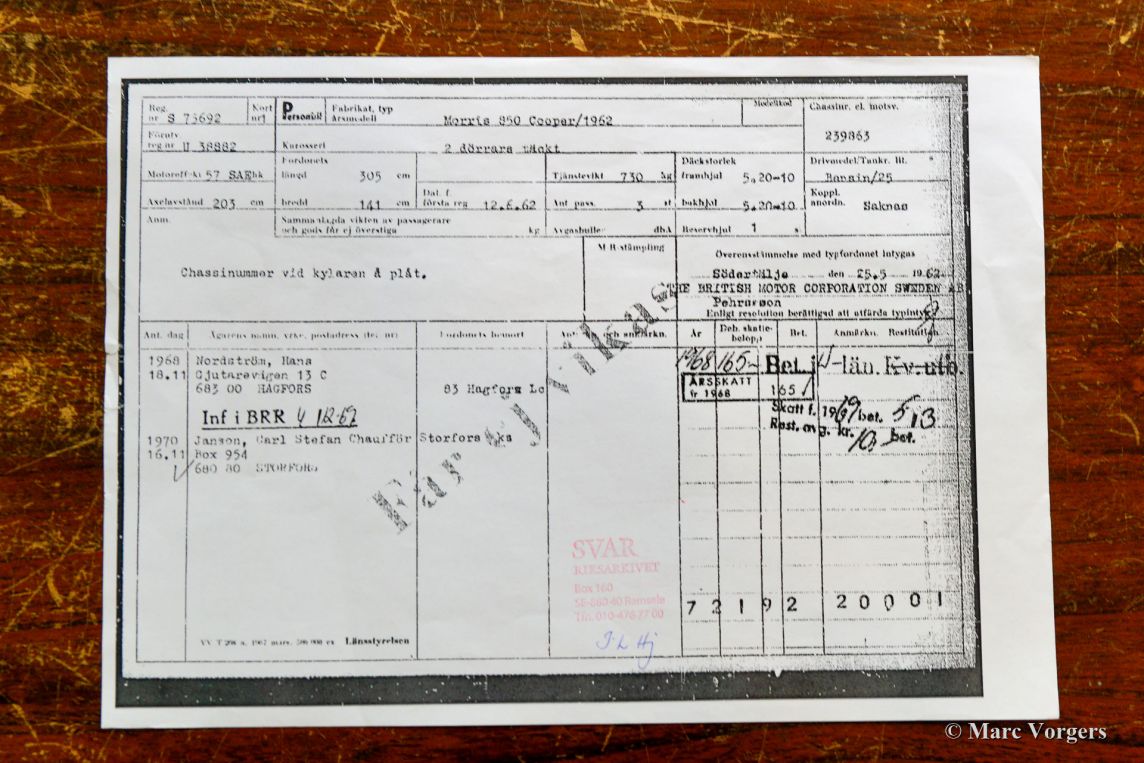 Reg. nr S 73692 Kort nr1 Personbil Fabrikat, typ årsmodell Morris 850 Cooper/1962 Modellkod Chassinr. el. motsv. 239863
Förutv. reg nr U 38882 Karosseri 2 dörrars täckt
Motoreffekt 57 SAE hk Fordonets längd 305 cm Tjänstevikt 730 kg Däckstorlek framhjul 5.20-10 Drivmedel/Tankr. lit. Bensin/25
Axelavstånd 203 cm bredd 141 cm Dat. f. första reg 12.6.62 Ant pass. 3 st bakhjul 5.20-10 Koppl. anordn. Saknas
Anm. Sammanlagda vikten av passagerare och gods får ej överstiga kg Avgasbuller dbA Reservhjul 1 s
MR-stämpling
Överensstämmelse med typfordonet intygas
Chassinummer vid kylaren å plåt.
Södertälje den 25.5 1962
THE BRITISH MOTOR CORPORATION SWEDEN AB
Pehrsson
Enligt resolution berättigad att utfärda typintyg
Ant. dag Ägarens namn, yrke, postadress Fordonets hemort År Deb. skattebelopp Bet. Anmärkn. Restitution
1968 Nordström, Hans 1968 165 Bet. i län. Kv. utb.
18.11 Gjutarevägen 13 C ÅRSSKATT
683 00 HAGFORS 83 Hagfors fr 1968 165
Inf i BRR Skatt f. 19 bet.
Rest. avg. kr. 10 bet.
1970 Janson, Carl Stefan Chaufför Storfors
16.11 Box 954
680 80 STORFORS
SVAR
RIKSARKIVET
Box 160
SE-880 40 Ramsele
Tfn. 010-476 77 00
72192 20001
Länsstyrelsen
© Marc Vorgers